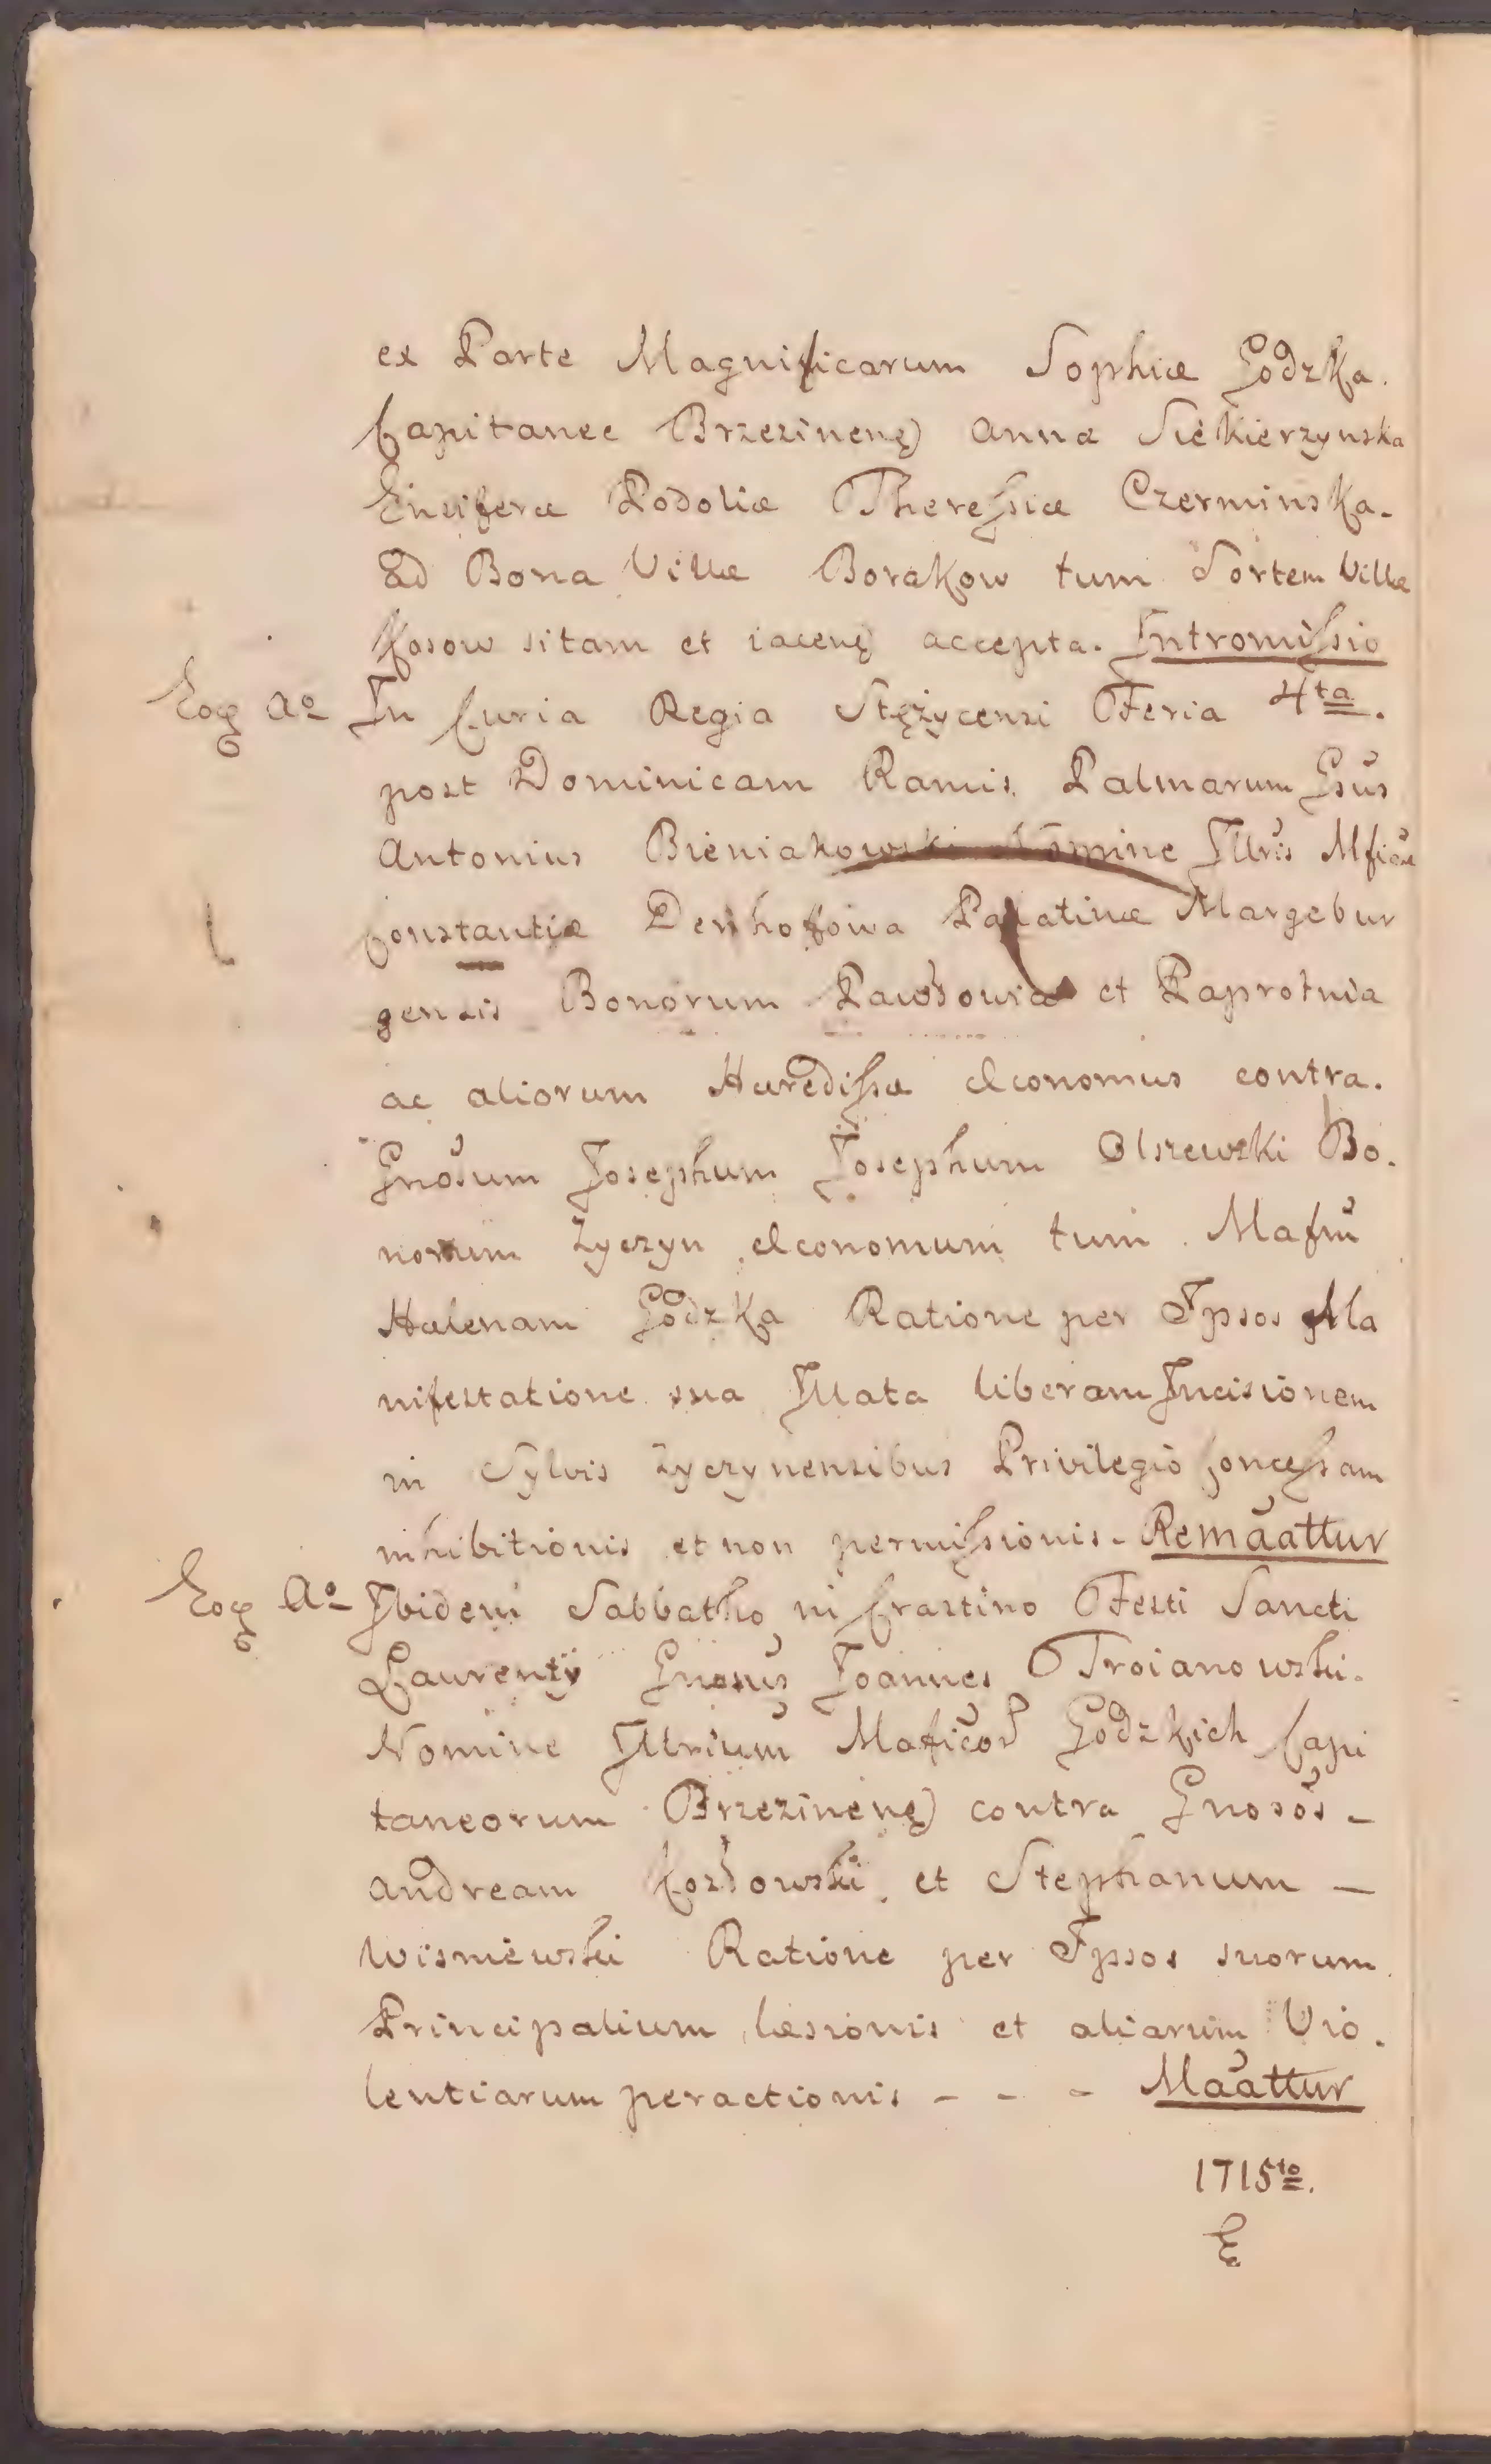 ex Parte Magnificarum Sophiæ Godzka.
Capitanee Brzezinenę) Annæ Siekierzynska
Ensiferæ Podoliæ Theresiæ Czerminska.
ad Bona Villæ Borakow tum Sortem Villæ
Kosow sitam et iacenę accepta. Intromissio
Eoq Aº In Curia Regia Stężycensi Feria 4ta.
post Dominicam Ramis Palmarum Gsus
Antonius Bieniakowski Nomine Illris Mficæ
Constantiæ Denhofowa Palatinæ Margebur
gensis Bonorum Pawłowice et Paprotnia
ac aliorum Hæredissæ Œconomus contra.
Gnosum Josephum Josephum Olszewski Bo.
norum Zyczyn Œconomum tum Mafm
Hælenam Godzka Ratione per Ipsos Ma
nifestatione sua Illata liberam Incisionem
in Sylvis Zyczynensibus Privilegio Concessam
inhibitionis et non permissionis. Remaattur
Eoq Aº Ibidem Sabbatho in Crastino Festi Sancti
Laurentÿ Gnosus Joannes Troianowski.
Nomine Illrium Maficor Godzkich Capi
taneorum Brzezinenę) contra Gnosos -
Andream Kozłowski et Stephanum -
Wisniewski Ratione per Ipsos suorum
Principalium læsionis et aliarum Vio.
lentiarum peractionis - - - Maattur
1715to.